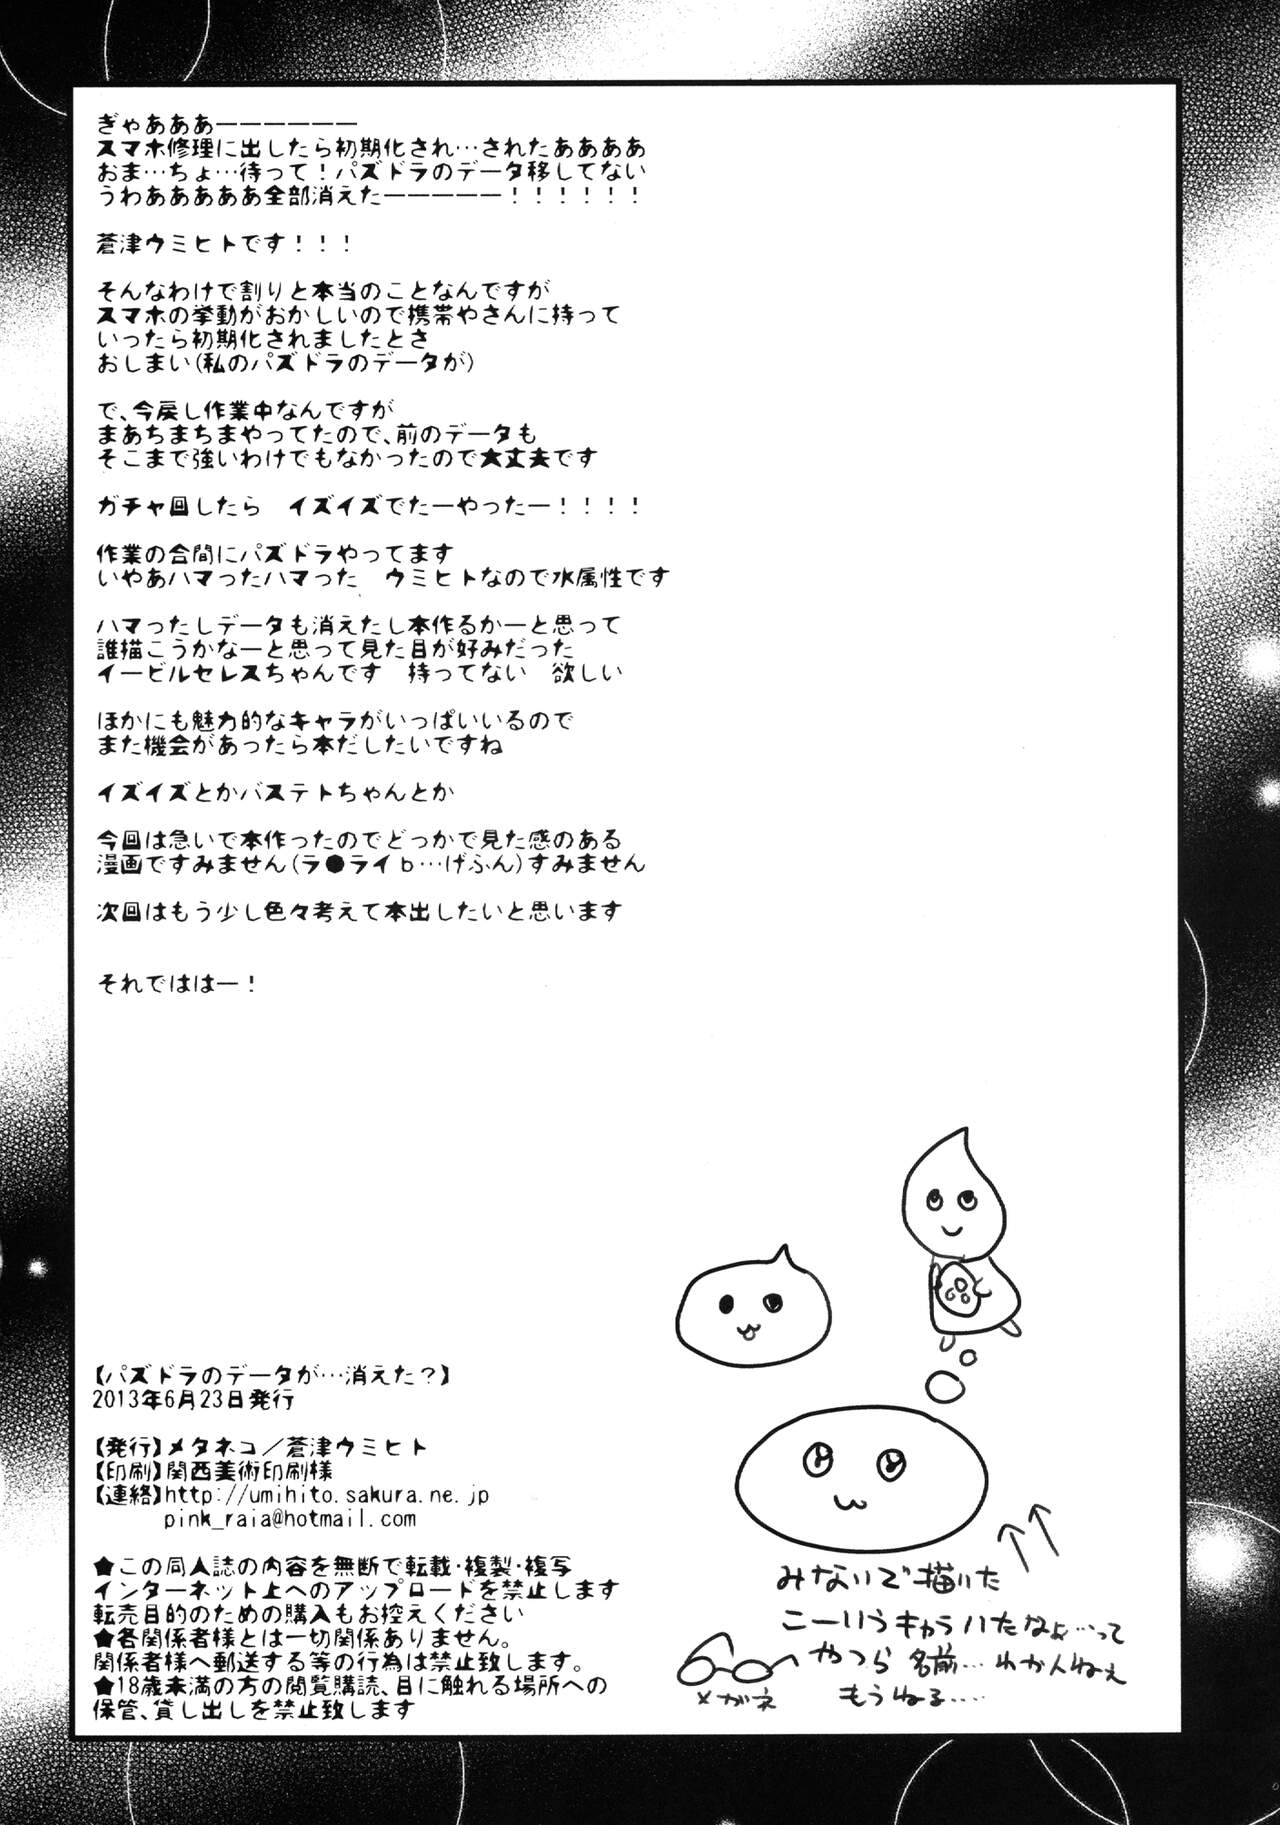 ぎゃあああーーーーーー
スマホ修理に出したら初期化され…されたああああ
おま…ちょ…待って！パズドラのデータ移してない
うわああああああ全部消えたーーーーー！！！！！！
蒼津ウミヒトです！！！
そんなわけで割りと本当のことなんですが
スマホの挙動がおかしいので携帯やさんに持って
いったら初期化されましたとさ
おしまい(私のパズドラのデータが)
で、今戻し作業中なんですが
まあちまちまやってたので、前のデータも
そこまで強いわけでもなかったので大丈夫です
ガチャ回したら　イズイズでたーやったー！！！！
作業の合間にパズドラやってます
いやあハマったハマった　ウミヒトなので水属性です
ハマったしデータも消えたし本作るかーと思って
誰描こうかなーと思って見た目が好みだった
イービルセレスちゃんです　持ってない　欲しい
ほかにも魅力的なキャラがいっぱいいるので
また機会があったら本だしたいですね
イズイズとかバステトちゃんとか
今回は急いで本作ったのでどっかで見た感のある
漫画ですみません(ラ●ライb…げふん)すみません
次回はもう少し色々考えて本出したいと思います
それでははー！
【パズドラのデータが…消えた？】
2013年6月23日発行
【発行】メタネコ／蒼津ウミヒト
【印刷】関西美術印刷様
【連絡】http://umihito.sakura.ne.jp
pink_raia@hotmail.com
★この同人誌の内容を無断で転載・複製・複写
インターネット上へのアップロードを禁止します
転売目的のための購入もお控えください
★各関係者様とは一切関係ありません。
関係者様へ郵送する等の行為は禁止致します。
★18歳未満の方の閲覧購読、目に触れる場所への
保管、貸し出しを禁止致します
みないで描いた
こーいうキャラいたなぁ…って
やつら 名前…わかんねぇ
もうねる……
メガネ